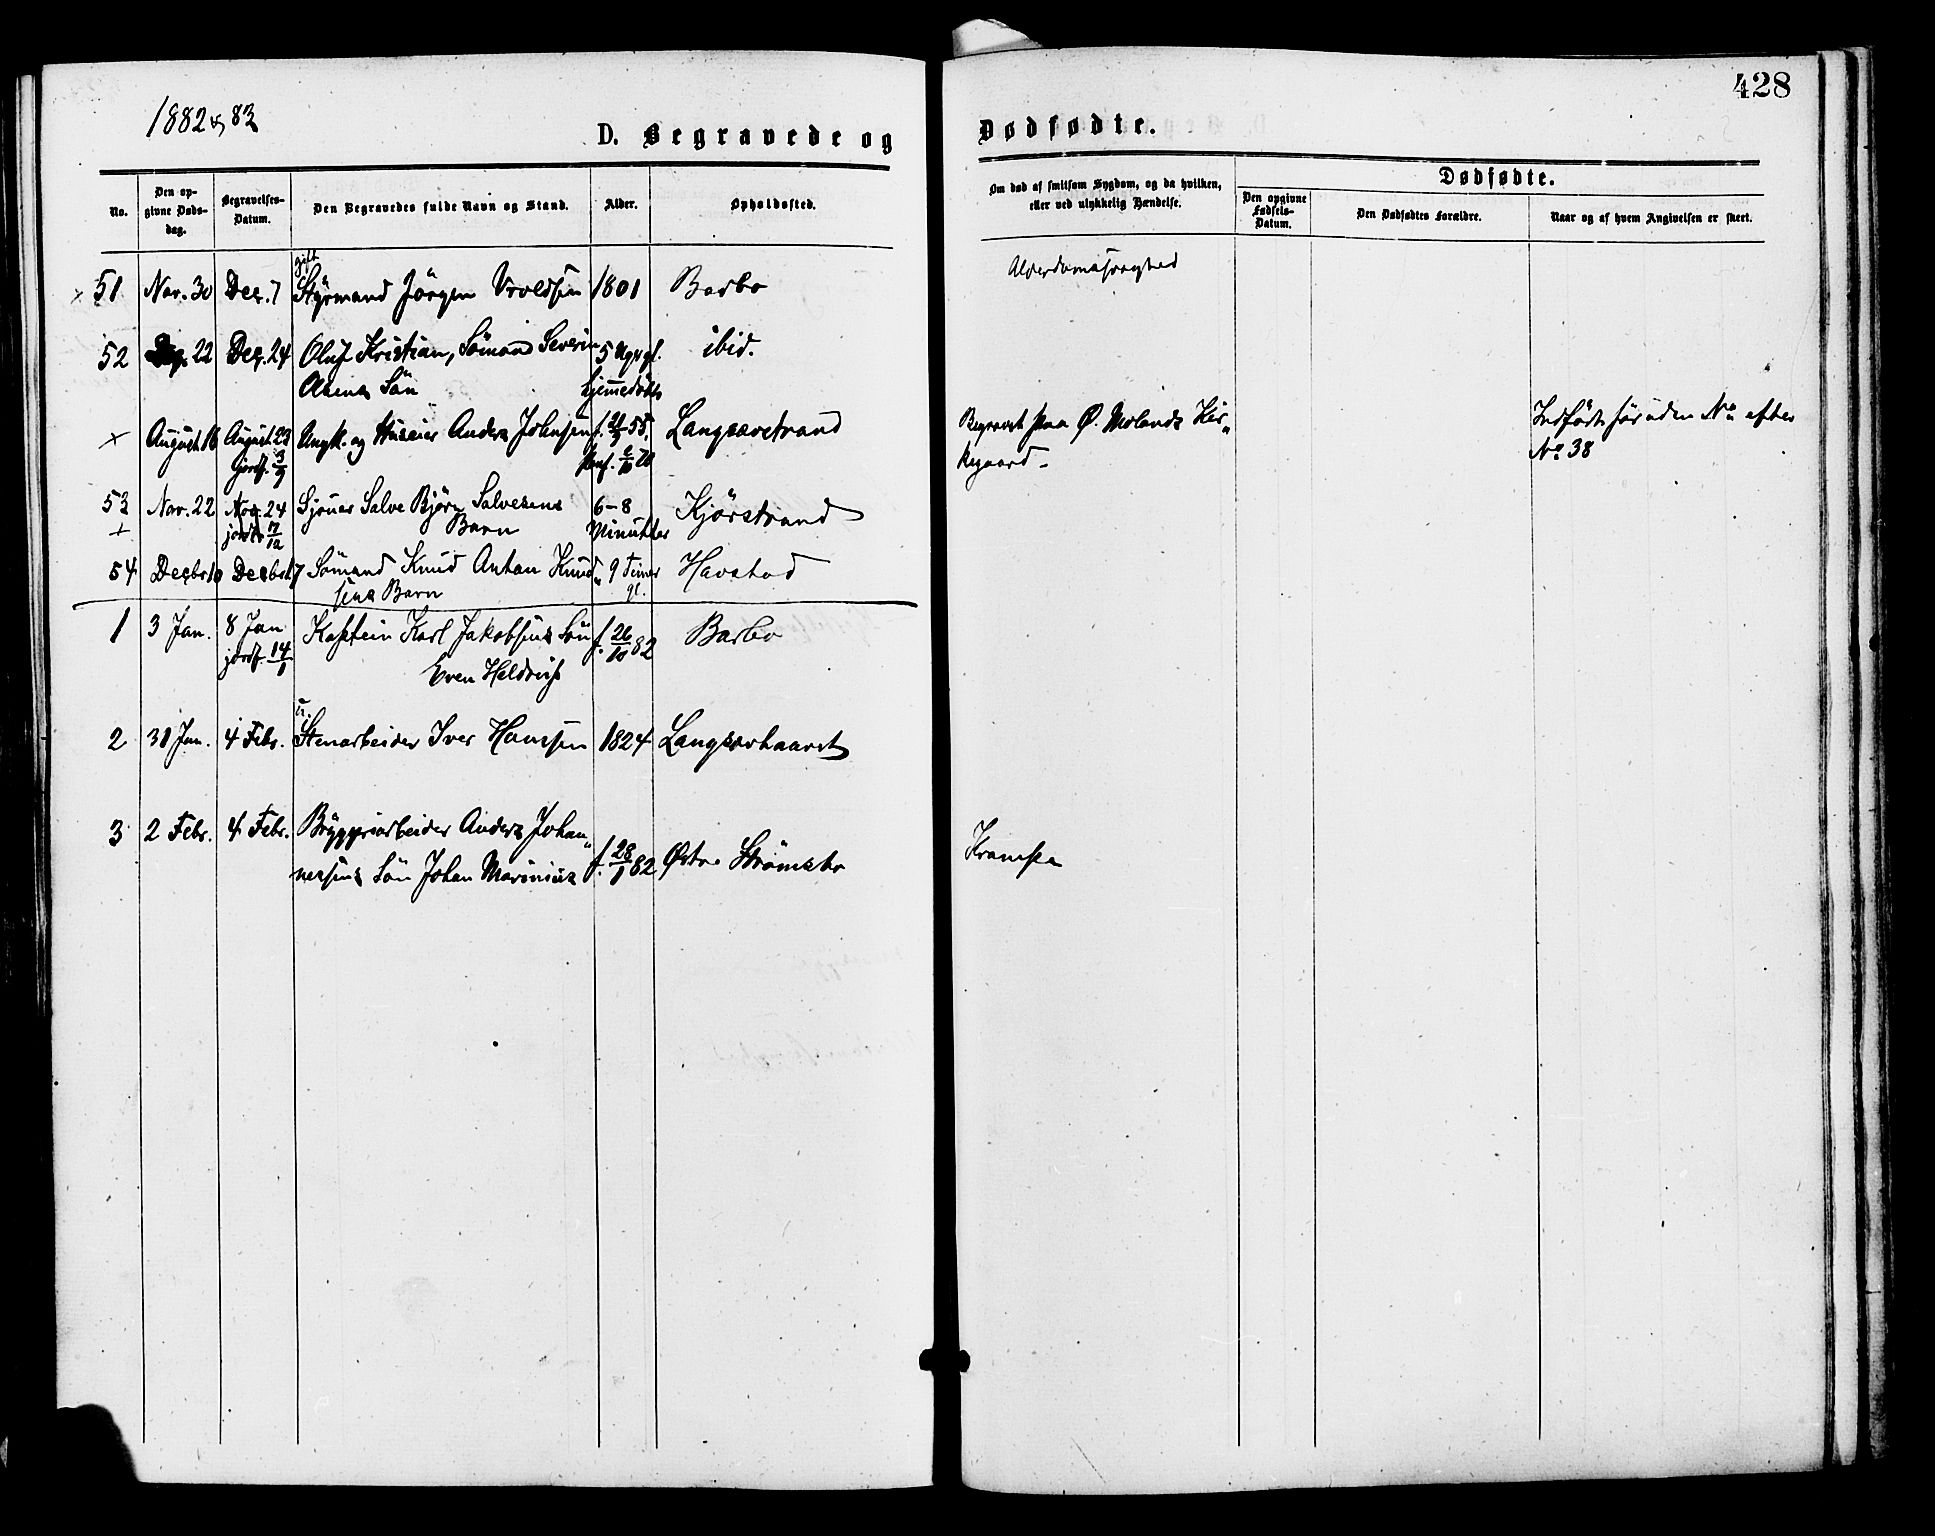 428
1882 & 83
D. Begravede og Dødfødte.
No.
Den opgivne Dødsdag.
Begravelses-Datum.
Den Begravedes fulde Navn og Stand.
Alder.
Opholdssted.
Om død af smitsom Sygdom, og da hvilken, eller ved ulykkelig Hændelse.
Dødfødte.
Den opgivne Fødsels-Datum.
Den Dødfødtes Forældre.
Naar og af hvem Angivelsen er skeet.
gift
x 51 Nov. 30 Dec. 7 Styrmand Jörgen 1801 Barbo Alderdomssvaghed
52 22 Dec. 24 Oluf Kristian, Sömand Severin 5 Uger gl. ibid.
Olsens Sön hjemmedöbt
x August 16 August 23 Ungk. og Huseier Anders Johnsen f. 55, Langsævstrand Begravet paa Ø. Molands Kir- Indført før uden No efter
jordf. 3/9 konf. 70 kegaard. No 38
53 Nov. 22 Nov. 24 Salve Björn Salvesens 6-8 Kjörstrand
+ jordf. 17/12 Barn Minutter
54 Decbr 10 Decbr 17 Sömand Knud Anton Knud- 9 Timer Havstad
sens Barn gl.
1 3 Jan. 8 Jan Kaptein Karl Jakobsens Sön f. 26/10 82 Barbo
jordf. 14/1 Even
u.
2 31 Jan. 4 Febr. Stenarbeider Iver Hansen 1824 Langsævhaavet
3 2 Febr. 4 Febr. Bryggeriarbeider Anders Johan-
nessens Sön Johan Marinius f. 28/1 82 Østre Strömsbo Krampe